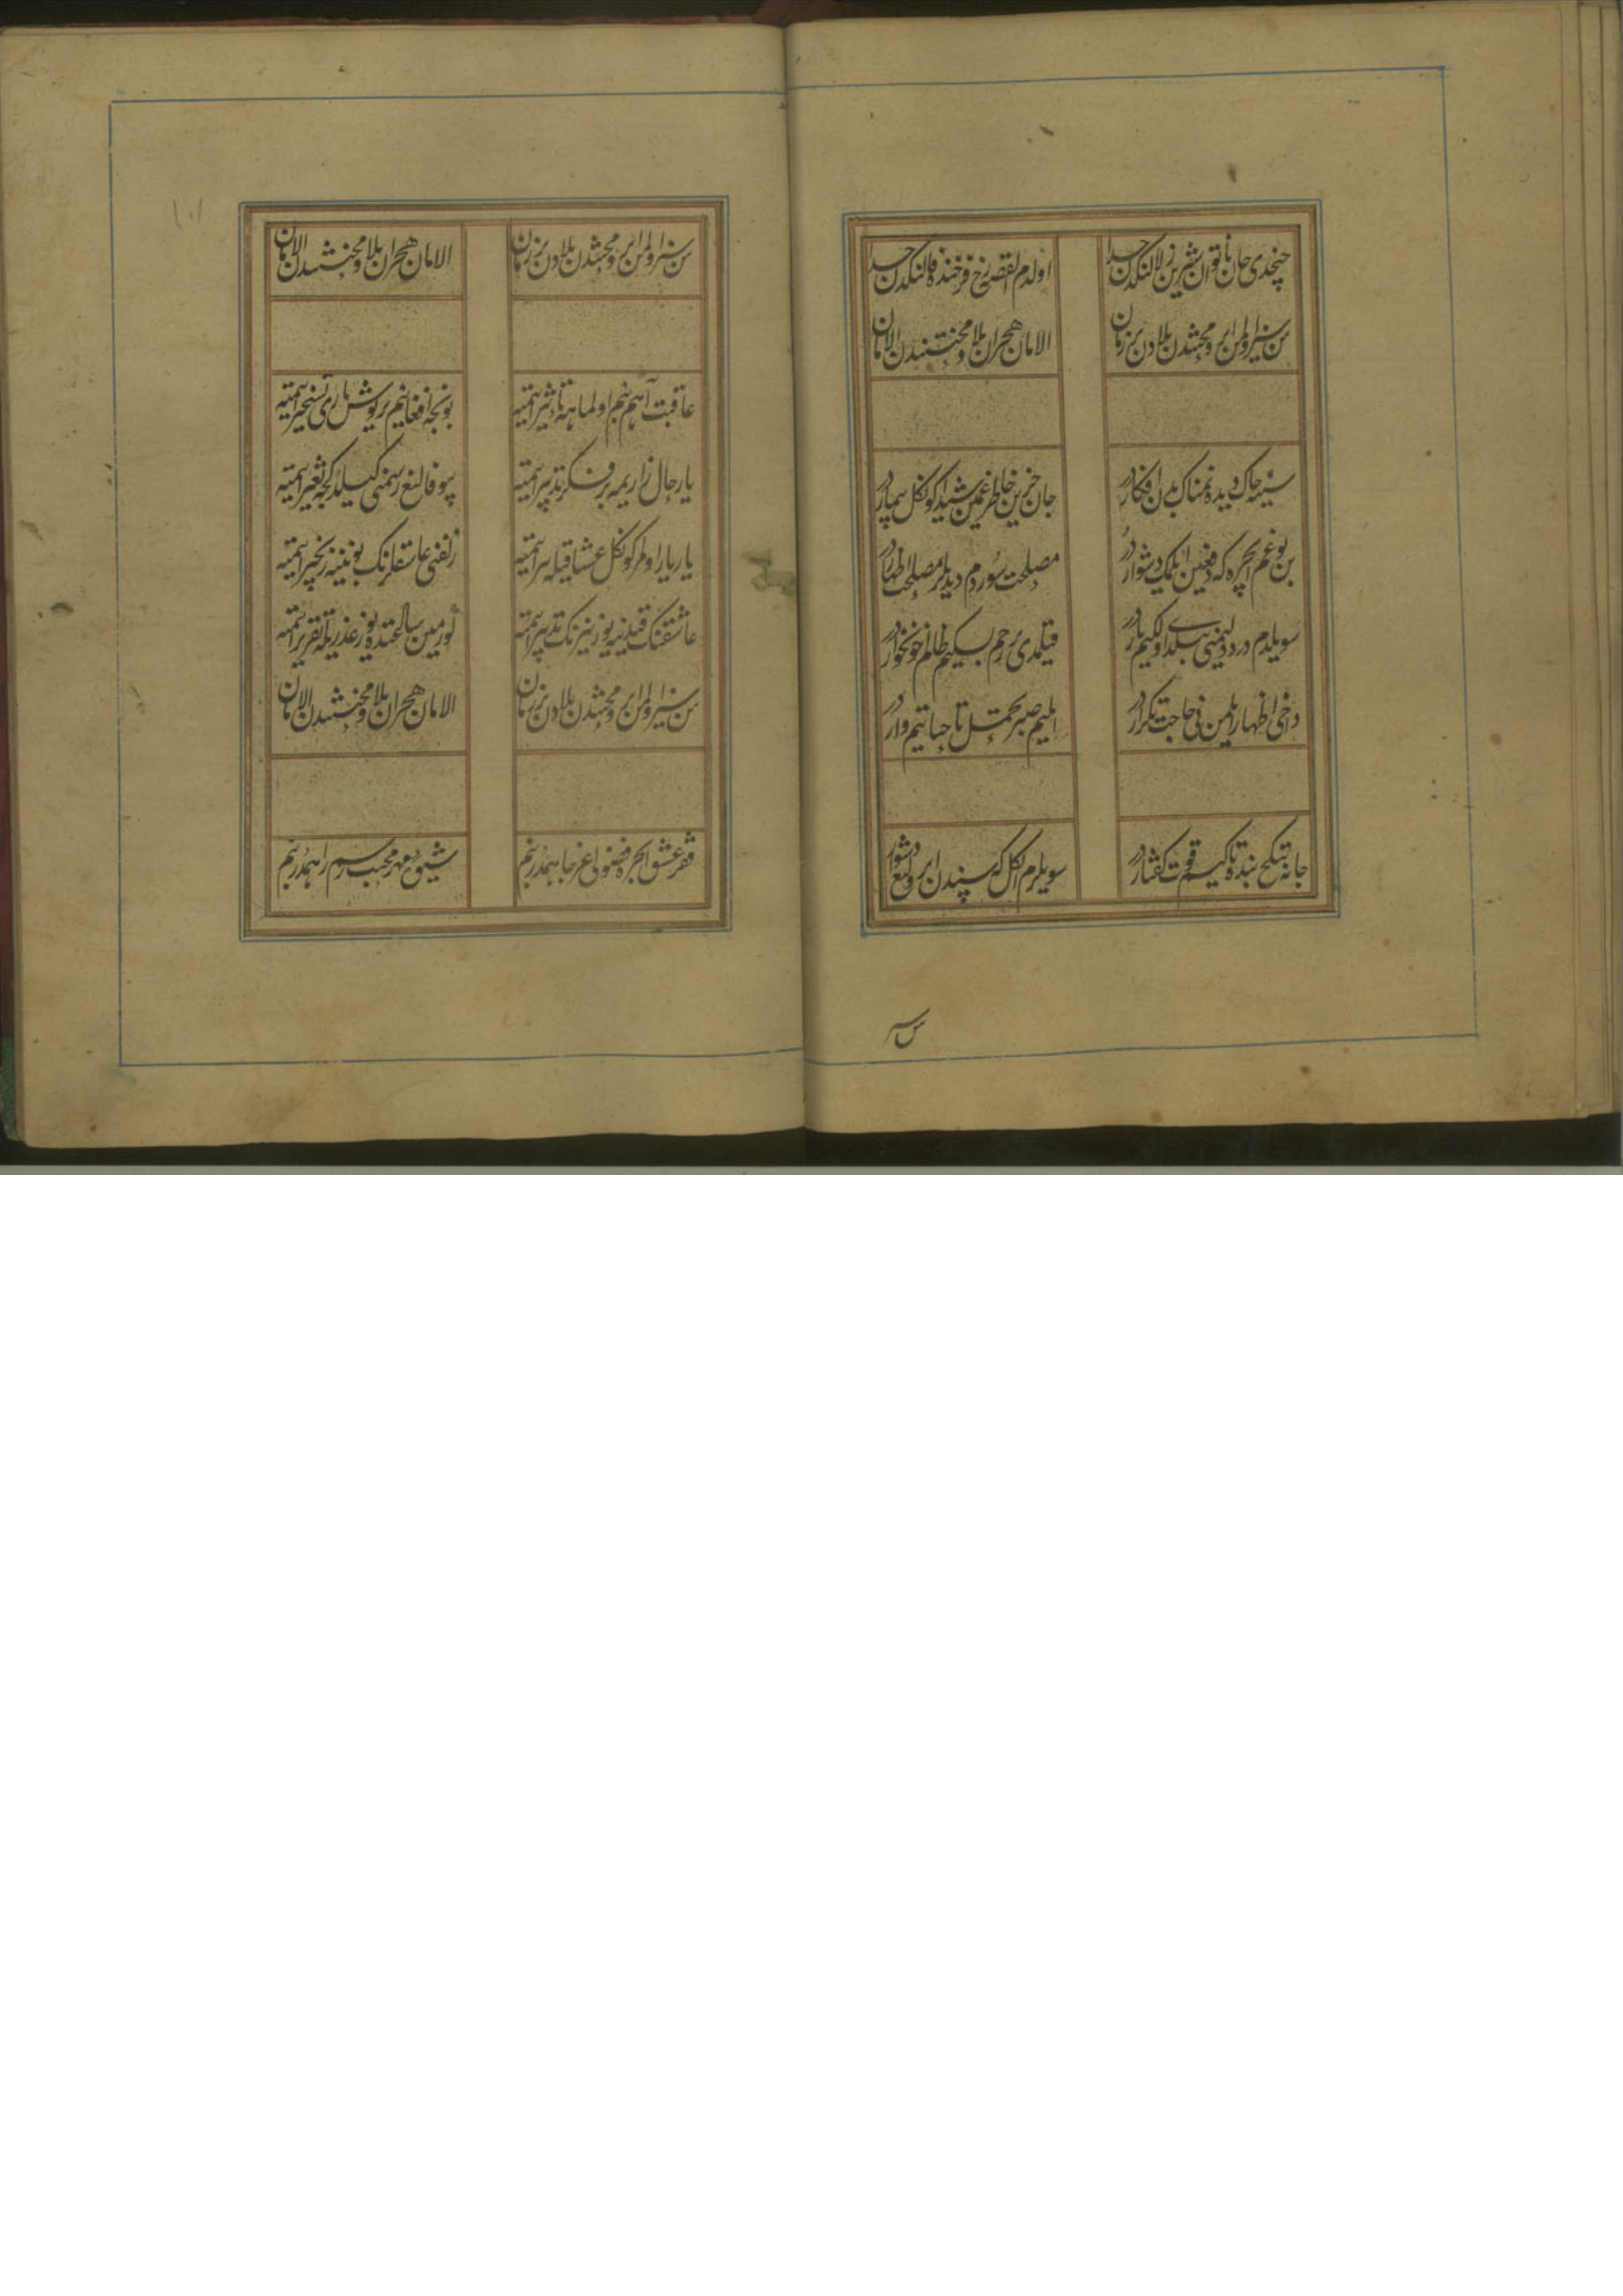 چخدی جان ناتوان شیرین زلالنکدن جدا
اولدم القصه رخ فرخنده فالنکدن جدا
سن سیز اولمن ایر و محنتدن بلادن بر زمان
الامان هجران بلا و محنتندن الامان
سینه چاک دیده نمناک بدن افکاردر
جان حزین خاطر غمین شیدا کونکل بیماردر
بن بو غم ایچره که دفعین ایلمک دشواردر
مصلحت سوردم دیدیلر مصلحت اظهاردر
سویلدم درد دلیمنی بیلدی اول کیم یاردر
قیلمدی رحم بسکیم ظالم خونخواردر
داخی اظهار ایلمن نی حاجت تکراردر
ایلیم صبر و تحمل تا حیاتیم واردر
جانه تیکج بنده تاکیم قوت کفتاردر
سویلرم اول کل کسپندن ایرولغ دشواردر
سن سیز
١٠١
سن سیز اولمن ایر و محنتدن بلادن بر زمان
الامان هجران بلا و محنتندن الامان
عاقبت آهم بنم اول ماهه تاثیر ایتمیه
بونجه افغانیم پریوش یاری تسخیر ایتمیه
یار حال زاریمه بر فکر تدبیر ایتمیه
بیوفالغ رسمنی کیلدکجه تغییر ایتمیه
یار یار اولمر کونکل عشاقیله سیر ایتمیه
زلفنی عاشقلرنک بویننه زنجیر ایتمیه
عاشقنک قیدینه یوز نیرنک تدبیر ایتمه
یوز مین سالغنده یوز عذریله تقریر ایتمه
سن سیز اولمن ایر و محنتدن بلادن بر زمان
الامان هجران بلا و محنتندن الامان
فقر عشق ایچره فضولی عز جاهمدر بنم
شیوه مهر محبت رسم راهمدر بنم